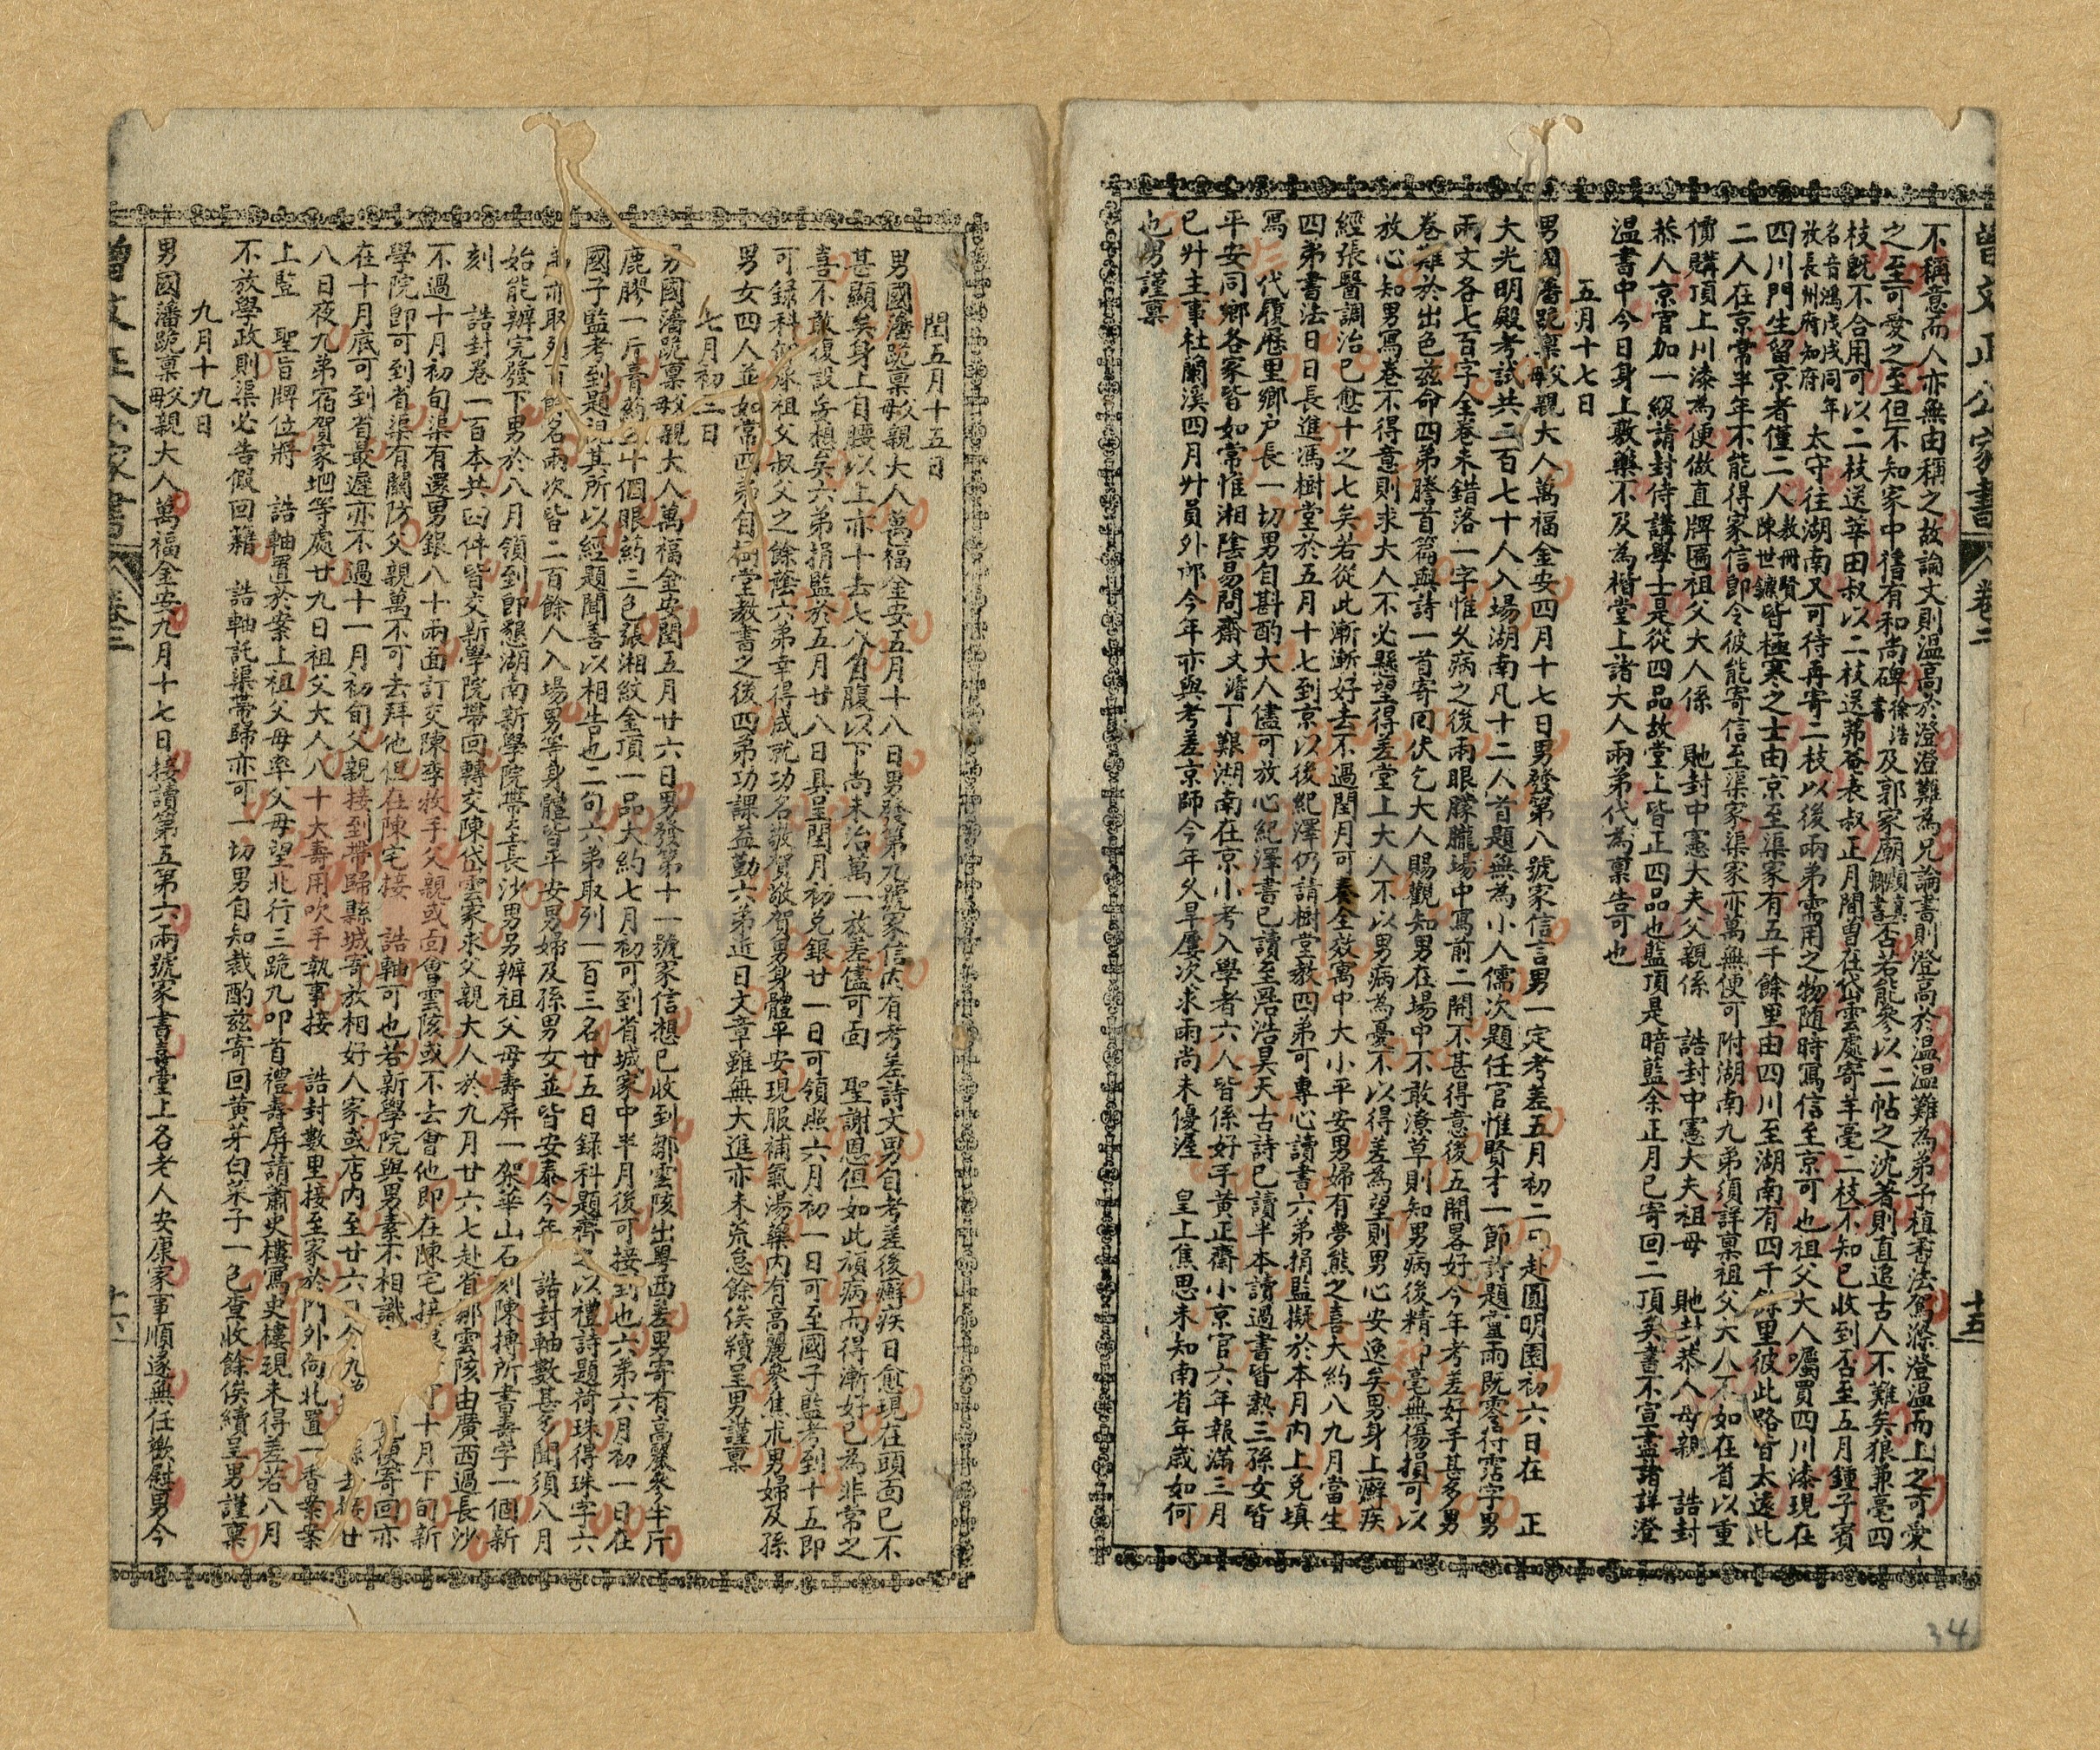 曾文正公家書
卷二
十五
不稱意而人亦無由稱之故論文則溫高於澄澄難為兄論書則澄高於溫溫難為弟子植書法駕滌澄溫而上之可愛
之至可愛之至但不知家中舊有和尚碑徐浩書及郭家廟顏真卿書否若能參以二帖之沈著則直追古人不難矣狼兼毫四
枝既不合用可以二枝送華田叔以二枝送莿菴表叔正月間曾在岱雲處寄羊毫二枝不知已收到否至五月鍾子賓
名音鴻戊戌同年放長州府知府太守往湖南又可待再寄二枝以後兩弟需用之物隨時寫信至京可也祖父大人囑買四川漆現在
四川門生留京者僅二人敖冊賢陳世鑣皆極寒之士由京至渠家有五千餘里由四川至湖南有四千餘里彼此路皆太遠此
二人在京常半年不能得家信即令彼能寄信至渠家渠家亦萬無便可附湖南九弟須詳稟祖父大人不如在省以重
價購頂上川漆為便做直牌匾祖父大人係 貤封中憲大夫父親係 誥封中憲大夫祖母 貤封恭人母親 誥封
恭人京官加一級請封侍講學士是從四品故堂上皆正四品也藍頂是暗藍余正月已寄回二頂矣書不宣盡諸詳澄
溫書中今日身上敷藥不及為楷堂上諸大人兩弟代為稟告可也
五月十七日
男國藩跪稟父母親大人萬福金安四月十七日男發第八號家信言男一定考差五月初二可赴圓明園初六日在 正
大光明殿考試共二百七十人入場湖南凡十二人首題無為小人儒次題任官惟賢才一節詩題靈雨既零得霑字男
兩文各七百字全卷未錯落一字惟久病之後兩眼朦朧場中寫前二開不甚得意後五開畧好今年考差好手甚多男
卷難於出色茲命四弟謄首篇與詩一首寄回伏乞大人賜觀知男在場中不敢潦草則知男病後精神毫無傷損可以
放心知男寫卷不得意則求大人不必懸望得差堂上大人不以男病為憂不以得差為望則男心安逸矣男身上癬疾
經張醫調治已愈十之七矣若從此漸漸好去不過閏月可奏全效寓中大小平安男婦有夢熊之喜大約八九月當生
四弟書法日日長進馮樹堂於五月十七到京以後紀澤仍請樹堂教四弟可專心讀書六弟捐監擬於本月內上兌填
寫 代履歷里鄉戶長一切男自斟酌大人儘可放心紀澤書已讀至浩浩昊天古詩已讀半本讀過書皆熟三孫女皆
平安同鄉各家皆如常惟湘陰易問齋文濬丁艱湖南在京小考入學者六人皆係好手黃正齋小京官六年報滿三月
已升主事杜蘭溪四月升員外郎今年亦與考差京師今年久旱屢次求雨尚未優渥 皇上焦思未知南省年歲如何
也男謹稟
閏五月十五日
男國藩跪稟父母親大人萬福金安五月十八日男發第九號家信內有考差詩文男自考差後癬疾日愈現在頭面已不
甚顯矣身上自腰以上亦十去七八自腹以下尚未治萬一放差儘可面 聖謝恩但如此頑病而得漸好已為非常之
喜不敢復設妄想矣六弟捐監於五月廿八日具呈閏月初兌銀廿一日可領照六月初一日可至國子監考到十五即
可録科仰承祖父叔父之餘蔭六弟幸得成就功名敬賀敬賀男身體平安現服補氣湯藥內有高麗參焦朮男婦及孫
男女四人並如常四弟自樹堂教書之後四弟功課益勤六弟近日文章雖無大進亦未荒怠餘俟續呈男謹稟
七月初三日
男國藩跪稟父母親大人萬福金安閏五月廿六日男發第十一號家信想已收到鄒雲陔出粵西差男寄有高麗參半斤
鹿膠一斤膏藥四十個眼藥三包張湘紋金頂一品大約七月初可到省城家中半月後可接到也六弟六月初一日在
國子監考到題視其所以經題聞善以相告也二句六弟取列一百三名廿五日録科題齊之以禮詩題荷珠得珠字六
弟亦取列百餘名兩次皆二百餘人入場男等身體皆平安男婦及孫男女並皆安泰今年 誥封軸數甚多聞須八月
始能辦完發下男於八月領到即懇湖南新學院帶至長沙男另辦祖父母壽屏一架華山石刻陳搏所書壽字一個新
刻 誥封卷一百本共四件皆交新學院帶回轉交陳岱雲家求父親大人於九月廿六七赴省鄒雲陔由廣西過長沙
不過十月初旬渠有還男銀八十兩面訂交陳季牧手父親或面會雲陔或不去會他即在陳宅接銀十月下旬新
學院即可到省渠有關防父親萬不可去拜他但在陳宅接 誥軸可也若新學院與男素不相識 覓便寄回亦
在十月底可到省最遲亦不過十一月初旬父親接到帶歸縣城寄放相好人家或店內至廿六日令九弟 縣去接廿
八日夜九弟宿賀家坳等處廿九日祖父大人八十大壽用吹手執事接 誥封數里接至家於門外向北置一香案案
上監 聖旨牌位將 誥軸置於案上祖父母率父母望北行三跪九叩首禮壽屏請蕭史樓寫史樓現未得差若八月
不放學政則渠必告假回籍 誥軸託渠帶歸亦可一切男自知裁酌茲寄回黃芽白菜子一包查收餘俟續呈男謹稟
九月十九日
男國藩跪稟父母親大人萬福金安九月十七日接讀第五第六兩號家書喜堂上各老人安康家事順遂無任歡慰男今
曾文正公家書
卷二
十六
34